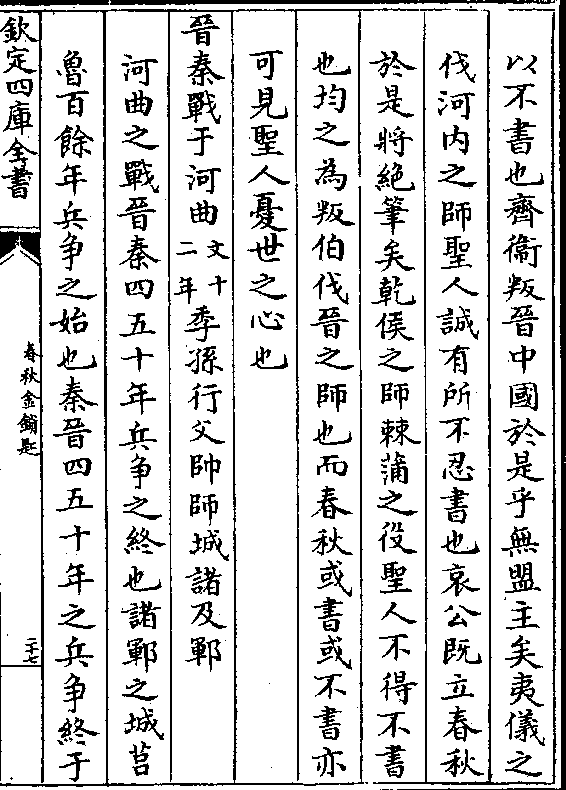 以不書也齊衞叛晉中國於是乎無盟主矣夷儀之
伐河内之師聖人誠有所不忍書也哀公既立春秋
於是將絶筆矣乾侯之師棘蒲之役聖人不得不書
也均之為叛伯伐晉之師也而春秋或書或不書亦
可見聖人憂世之心也
晉秦戰于河曲文十二年季孫行父帥師城諸及鄆
河曲之戰晉秦四五十年兵争之終也諸鄆之城莒
魯百餘年兵争之始也秦晉四五十年之兵争終于
欽定四庫全書
春秋金鎖匙
二十七